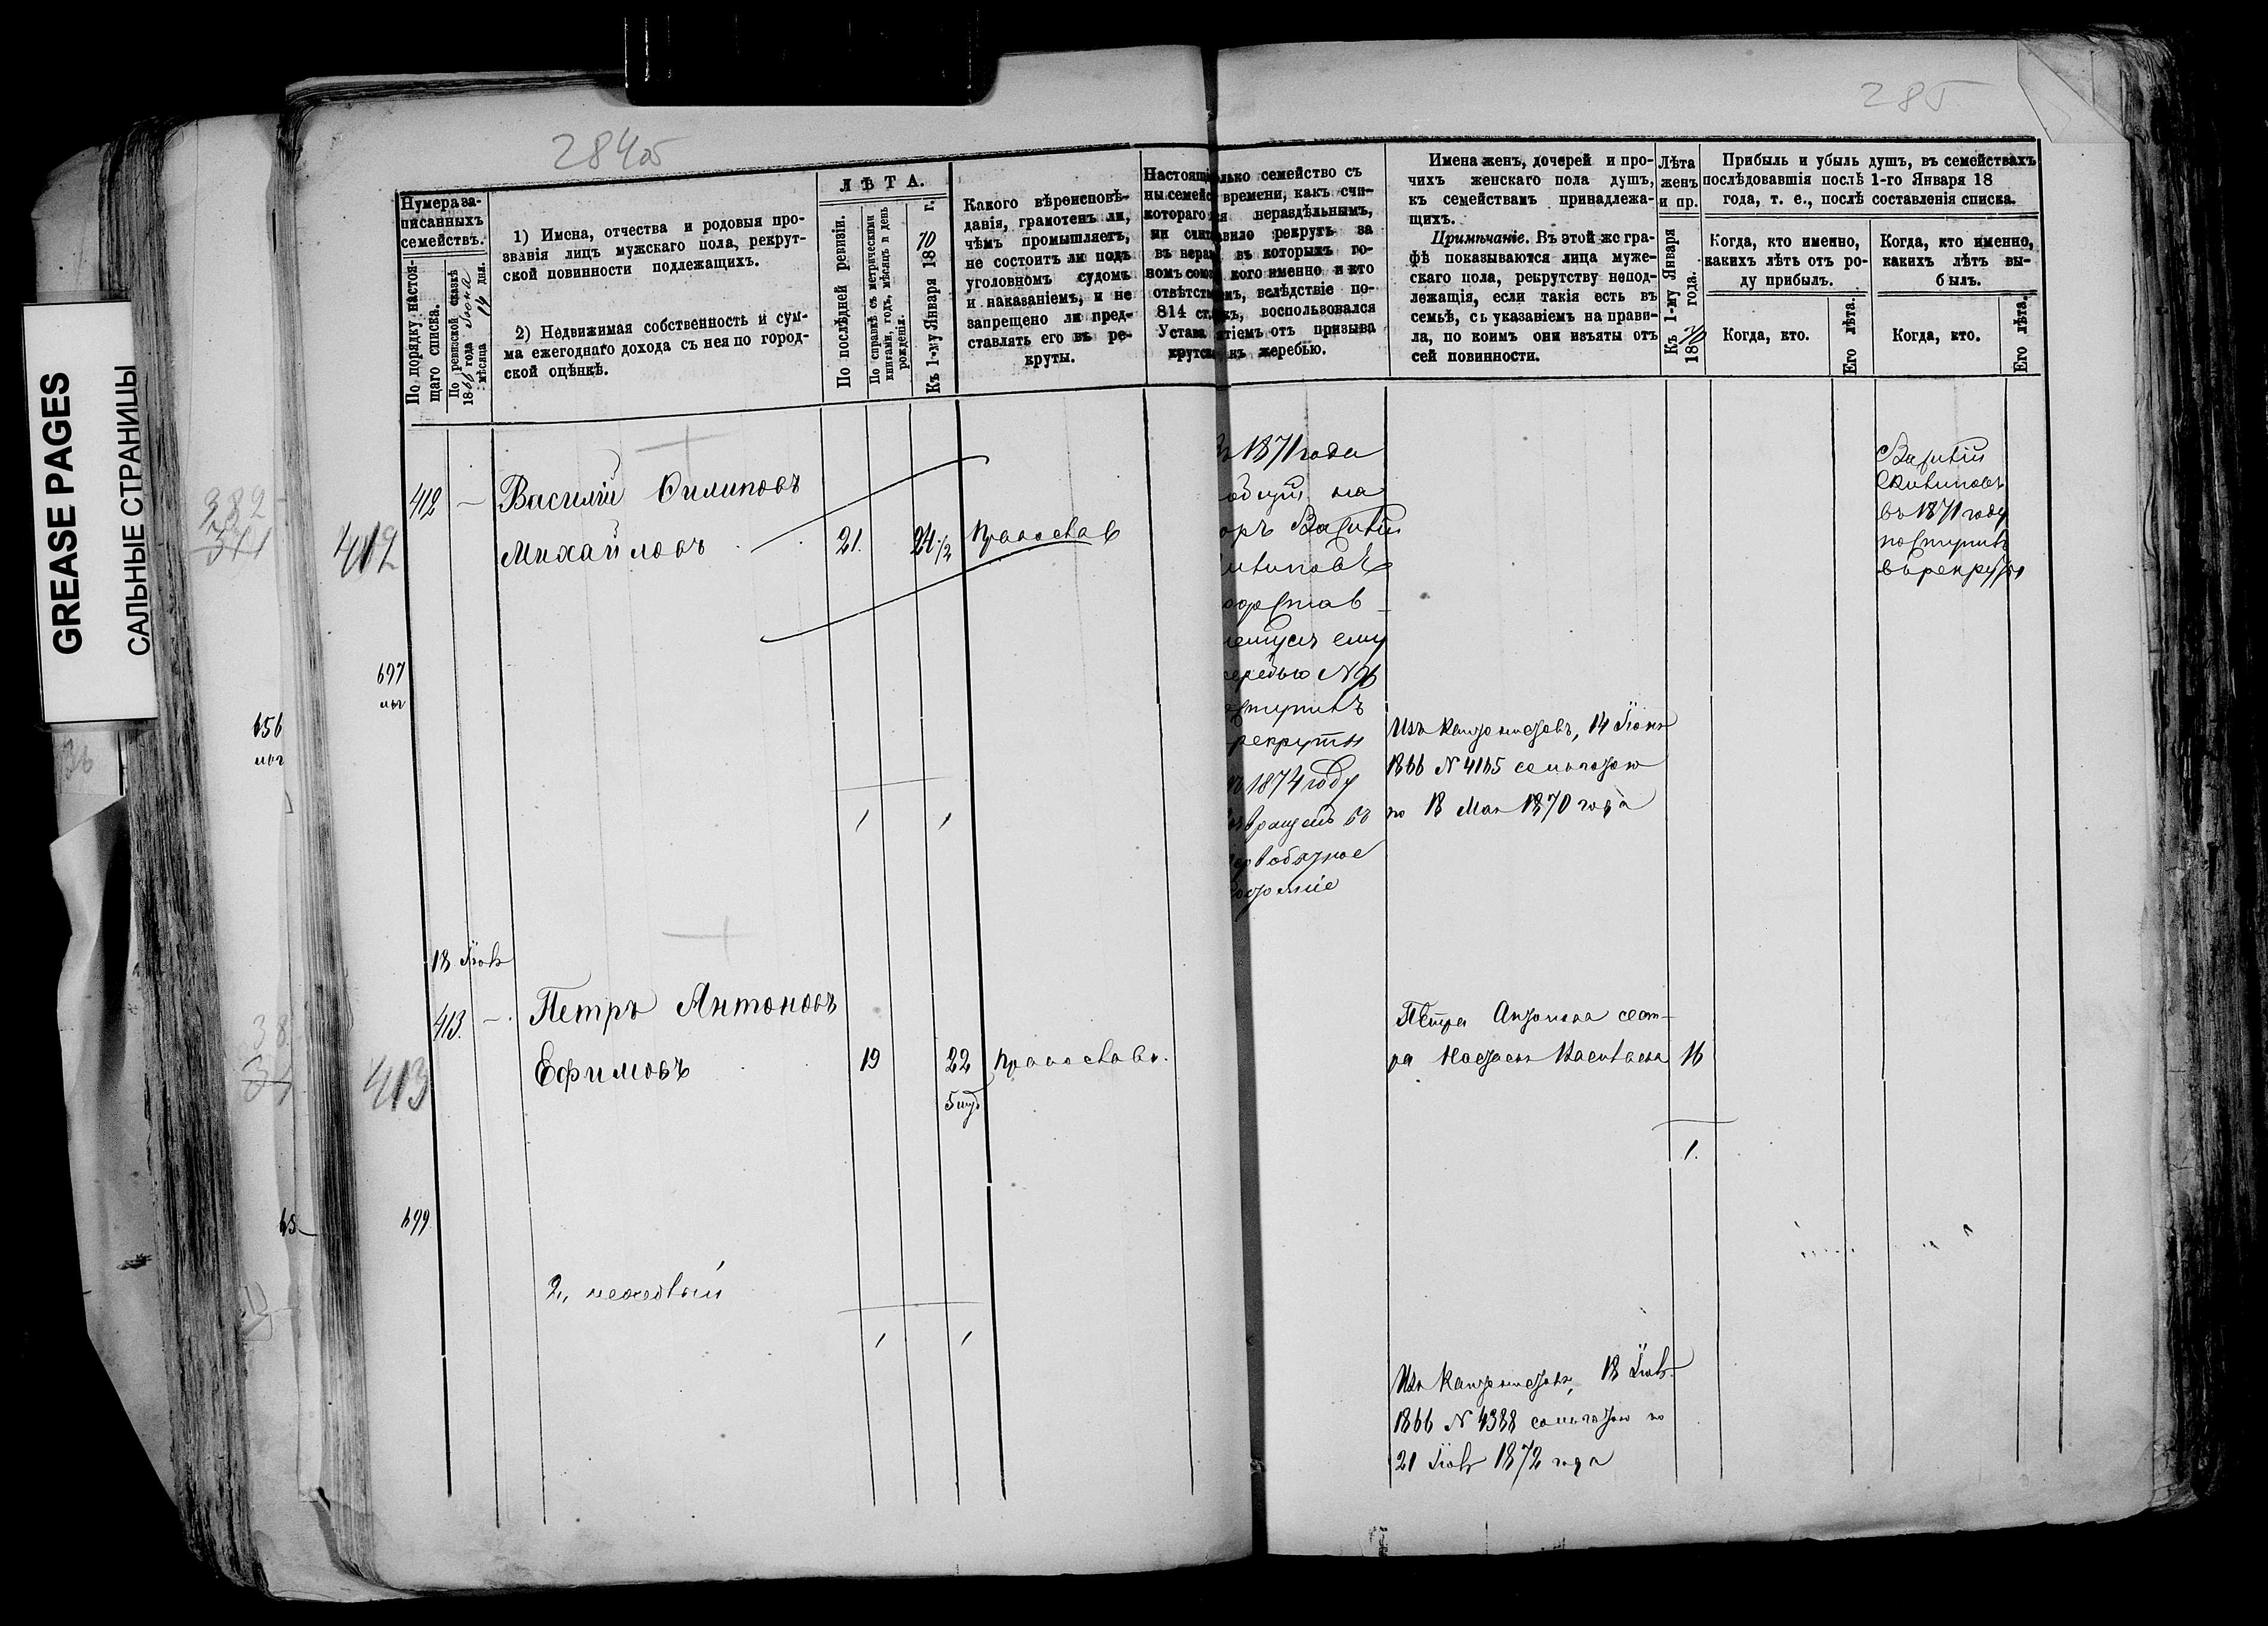 GREASE PAGES
САЛЬНЫЕ СТРАНИЦЫ
284об
285
Нумера за-
писанныхъ
семействъ.
По порядку настоя-
щаго списка.
По ревизской сказкѣ
1866 года Іюня
мѣсяца 14 дня.
1) Имена, отчества и родовыя про-
званія лицъ мужскаго пола, рекрут-
ской повинности подлежащихъ.
2) Недвижимая собственность и сум-
ма ежегоднаго дохода съ нея по город-
ской оцѣнкѣ.
ЛѢТА.
По послѣдней ревизіи.
По справкѣ съ метрическими
книгами, годъ, мѣсяцъ и день
рожденія.
Къ 1-му Января 1870 г.
Какого вѣроисповѣ-
данія, грамотенъ ли,
чѣмъ промышляетъ,
не состоитъ ли подъ
уголовномъ судомъ
и наказаніемъ, и не
запрещено ли пред-
ставлять его въ ре-
круты.
Настоящ
ны семейс
котораго
ми счит
въ нераз
номъ союз
отвѣтств
814 ст.
Устава
крутск
лько семейство съ
времени, какъ счи-
ся нераздѣльнымъ,
вило рекрутъ за
въ которыхъ го-
кого именно и кто
мъ, вслѣдствіе по-
къ, воспользовался
тіемъ отъ призыва
къ жеребью.
Имена женъ, дочерей и про-
чихъ женскаго пола душъ,
къ семействамъ принадлежа-
щихъ.
Примѣчаніе. Въ этой же гра-
фѣ показываются лица муже-
скаго пола, рекрутству непод-
лежащія, если такія есть въ
семьѣ, съ указаніемъ на прави-
ла, по коимъ они изъяты отъ
сей повинности.
Лѣта
женъ
и пр.
Къ 1-му Января
1870 года.
Прибыль и убыль душъ, въ семействахъ
послѣдовавшія послѣ 1-го Января 18
года, т. е., послѣ составленія списка.
Когда, кто именно,
какихъ лѣтъ отъ ро-
ду прибылъ.
Когда, кто.
Его лѣта.
Когда, кто именно,
какихъ лѣтъ вы-
былъ.
Когда, кто.
Его лѣта.
412
412 — Василій Филиповъ
Михайловъ 21. 24 1/2 Православ
ъ 1871 года
на
оръ Василій
илиповъ
ему
еребью №
оступилъ
рекруты
въ 1874 году
вращенъ въ
ервобытное
Василій
Филиповъ
въ 1871 году
поступилъ
въ рекруты
697
656
1 1
Изъ кантонистовъ, 14 Іюня
1866 № 4165 со льготою
по 18 Мая 1870 года
18 Іюля
413
413. — Петръ Антоновъ
Ефимовъ 19 22 Православн.
Петра Антонова сест-
ра Настасья Васильева 16
1.
699
1 1
Изъ кантонистовъ, 18 Іюля
1866 № 4388 со льготою по
21 Іюля 1872 года